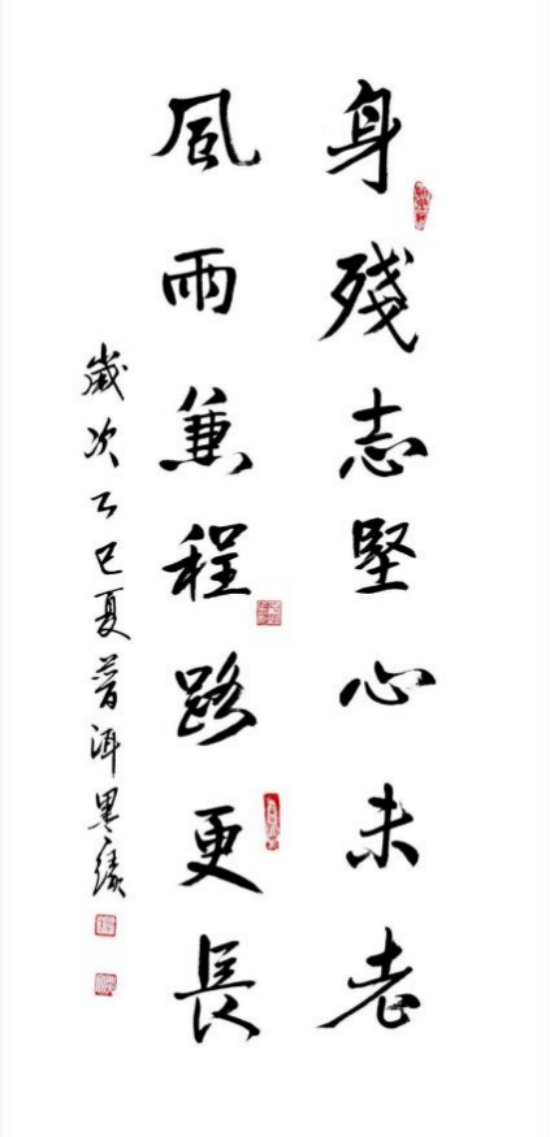 身殘志堅心未老
風雨兼程路更長
歲次乙巳夏普洱墨緣